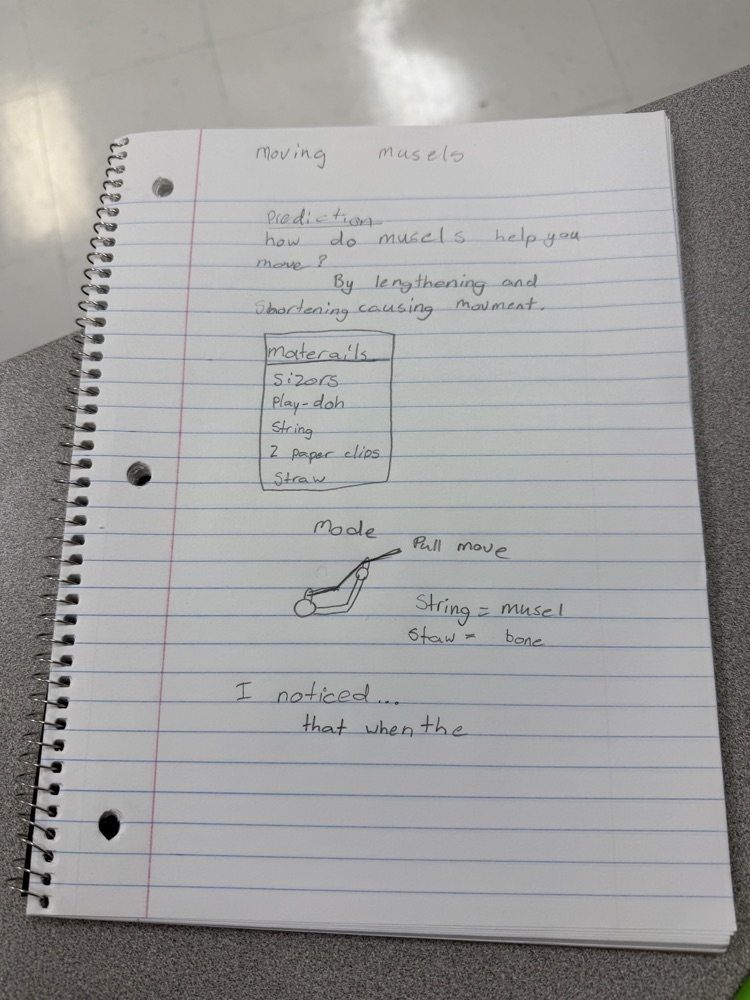 moving musels
Prediction
how do musels help you
move?
By lengthening and
Shortening causing movment.
materails
Sizors
Play-doh
String
2 paper clips
Straw
Mode
Pull move
String = musel
Staw = bone
I noticed...
that when the